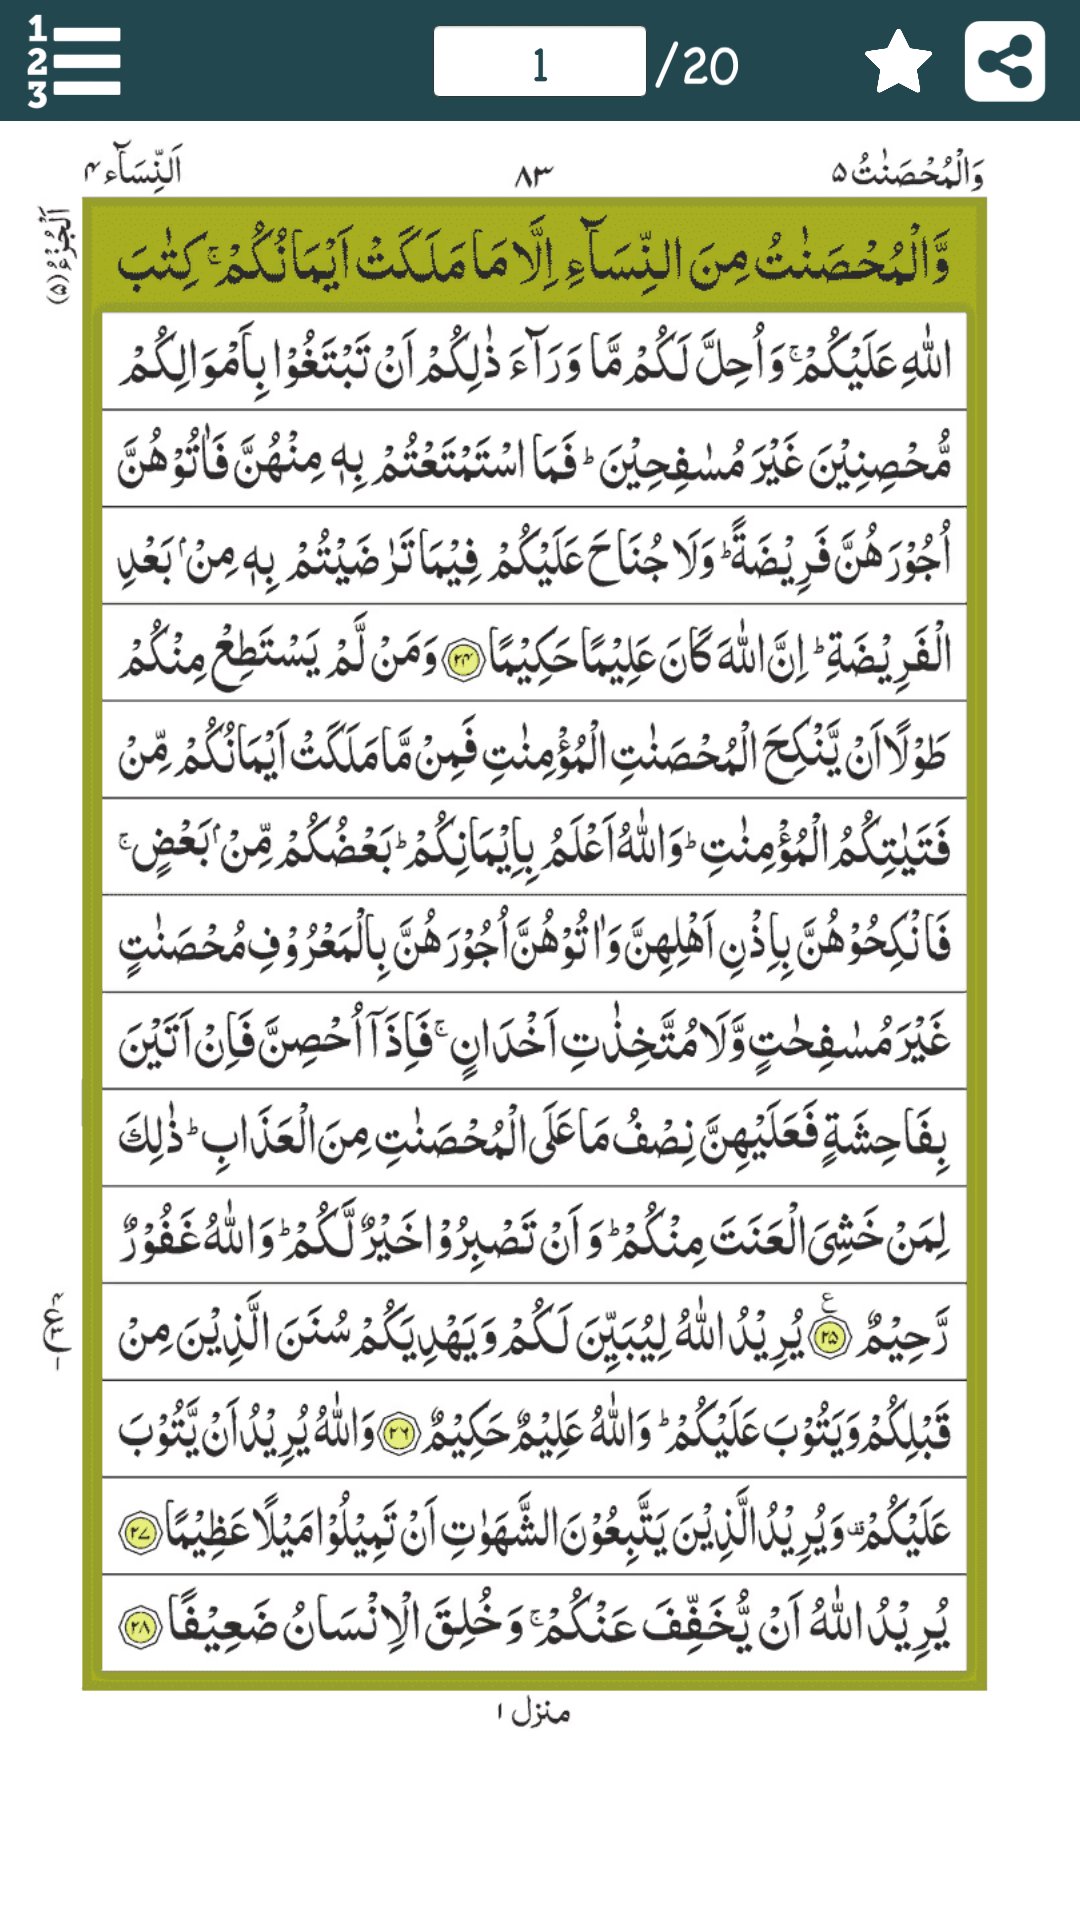 1
2
3
1
/20
اَلنِّسَآء ۴
٨٣
وَالْمُحْصَنٰتُ ۵
اَلْجُزْءُ (۵)
وَّالْمُحْصَنٰتُ مِنَ النِّسَآءِ اِلَّا مَا مَلَكَتْ اَيْمَانُكُمْ ۚ كِتٰبَ
اللّٰهِ عَلَيْكُمْ ۚ وَاُحِلَّ لَكُمْ مَّا وَرَآءَ ذٰلِكُمْ اَنْ تَبْتَغُوْا بِاَمْوَالِكُمْ
مُّحْصِنِيْنَ غَيْرَ مُسٰفِحِيْنَ ؕ فَمَا اسْتَمْتَعْتُمْ بِهٖ مِنْهُنَّ فَاٰتُوْهُنَّ
اُجُوْرَهُنَّ فَرِيْضَةً ؕ وَلَا جُنَاحَ عَلَيْكُمْ فِيْمَا تَرٰضَيْتُمْ بِهٖ مِنْۢ بَعْدِ
الْفَرِيْضَةِ ؕ اِنَّ اللّٰهَ كَانَ عَلِيْمًا حَكِيْمًا ﴿۲۴﴾ وَمَنْ لَّمْ يَسْتَطِعْ مِنْكُمْ
طَوْلًا اَنْ يَّنْكِحَ الْمُحْصَنٰتِ الْمُؤْمِنٰتِ فَمِنْ مَّا مَلَكَتْ اَيْمَانُكُمْ مِّنْ
فَتَيٰتِكُمُ الْمُؤْمِنٰتِ ؕ وَاللّٰهُ اَعْلَمُ بِاِيْمَانِكُمْ ؕ بَعْضُكُمْ مِّنْۢ بَعْضٍ ۚ
فَانْكِحُوْهُنَّ بِاِذْنِ اَهْلِهِنَّ وَاٰتُوْهُنَّ اُجُوْرَهُنَّ بِالْمَعْرُوْفِ مُحْصَنٰتٍ
غَيْرَ مُسٰفِحٰتٍ وَّلَا مُتَّخِذٰتِ اَخْدَانٍ ۚ فَاِذَآ اُحْصِنَّ فَاِنْ اَتَيْنَ
بِفَاحِشَةٍ فَعَلَيْهِنَّ نِصْفُ مَا عَلَى الْمُحْصَنٰتِ مِنَ الْعَذَابِ ؕ ذٰلِكَ
لِمَنْ خَشِيَ الْعَنَتَ مِنْكُمْ ؕ وَاَنْ تَصْبِرُوْا خَيْرٌ لَّكُمْ ؕ وَاللّٰهُ غَفُوْرٌ
رَّحِيْمٌ ﴿۲۵﴾ ع يُرِيْدُ اللّٰهُ لِيُبَيِّنَ لَكُمْ وَيَهْدِيَكُمْ سُنَنَ الَّذِيْنَ مِنْ
قَبْلِكُمْ وَيَتُوْبَ عَلَيْكُمْ ؕ وَاللّٰهُ عَلِيْمٌ حَكِيْمٌ ﴿۲۶﴾ وَاللّٰهُ يُرِيْدُ اَنْ يَّتُوْبَ
عَلَيْكُمْ ۟ وَيُرِيْدُ الَّذِيْنَ يَتَّبِعُوْنَ الشَّهَوٰتِ اَنْ تَمِيْلُوْا مَيْلًا عَظِيْمًا ﴿۲۷﴾
يُرِيْدُ اللّٰهُ اَنْ يُّخَفِّفَ عَنْكُمْ ۚ وَخُلِقَ الْاِنْسَانُ ضَعِيْفًا ﴿۲۸﴾
منزل ۱